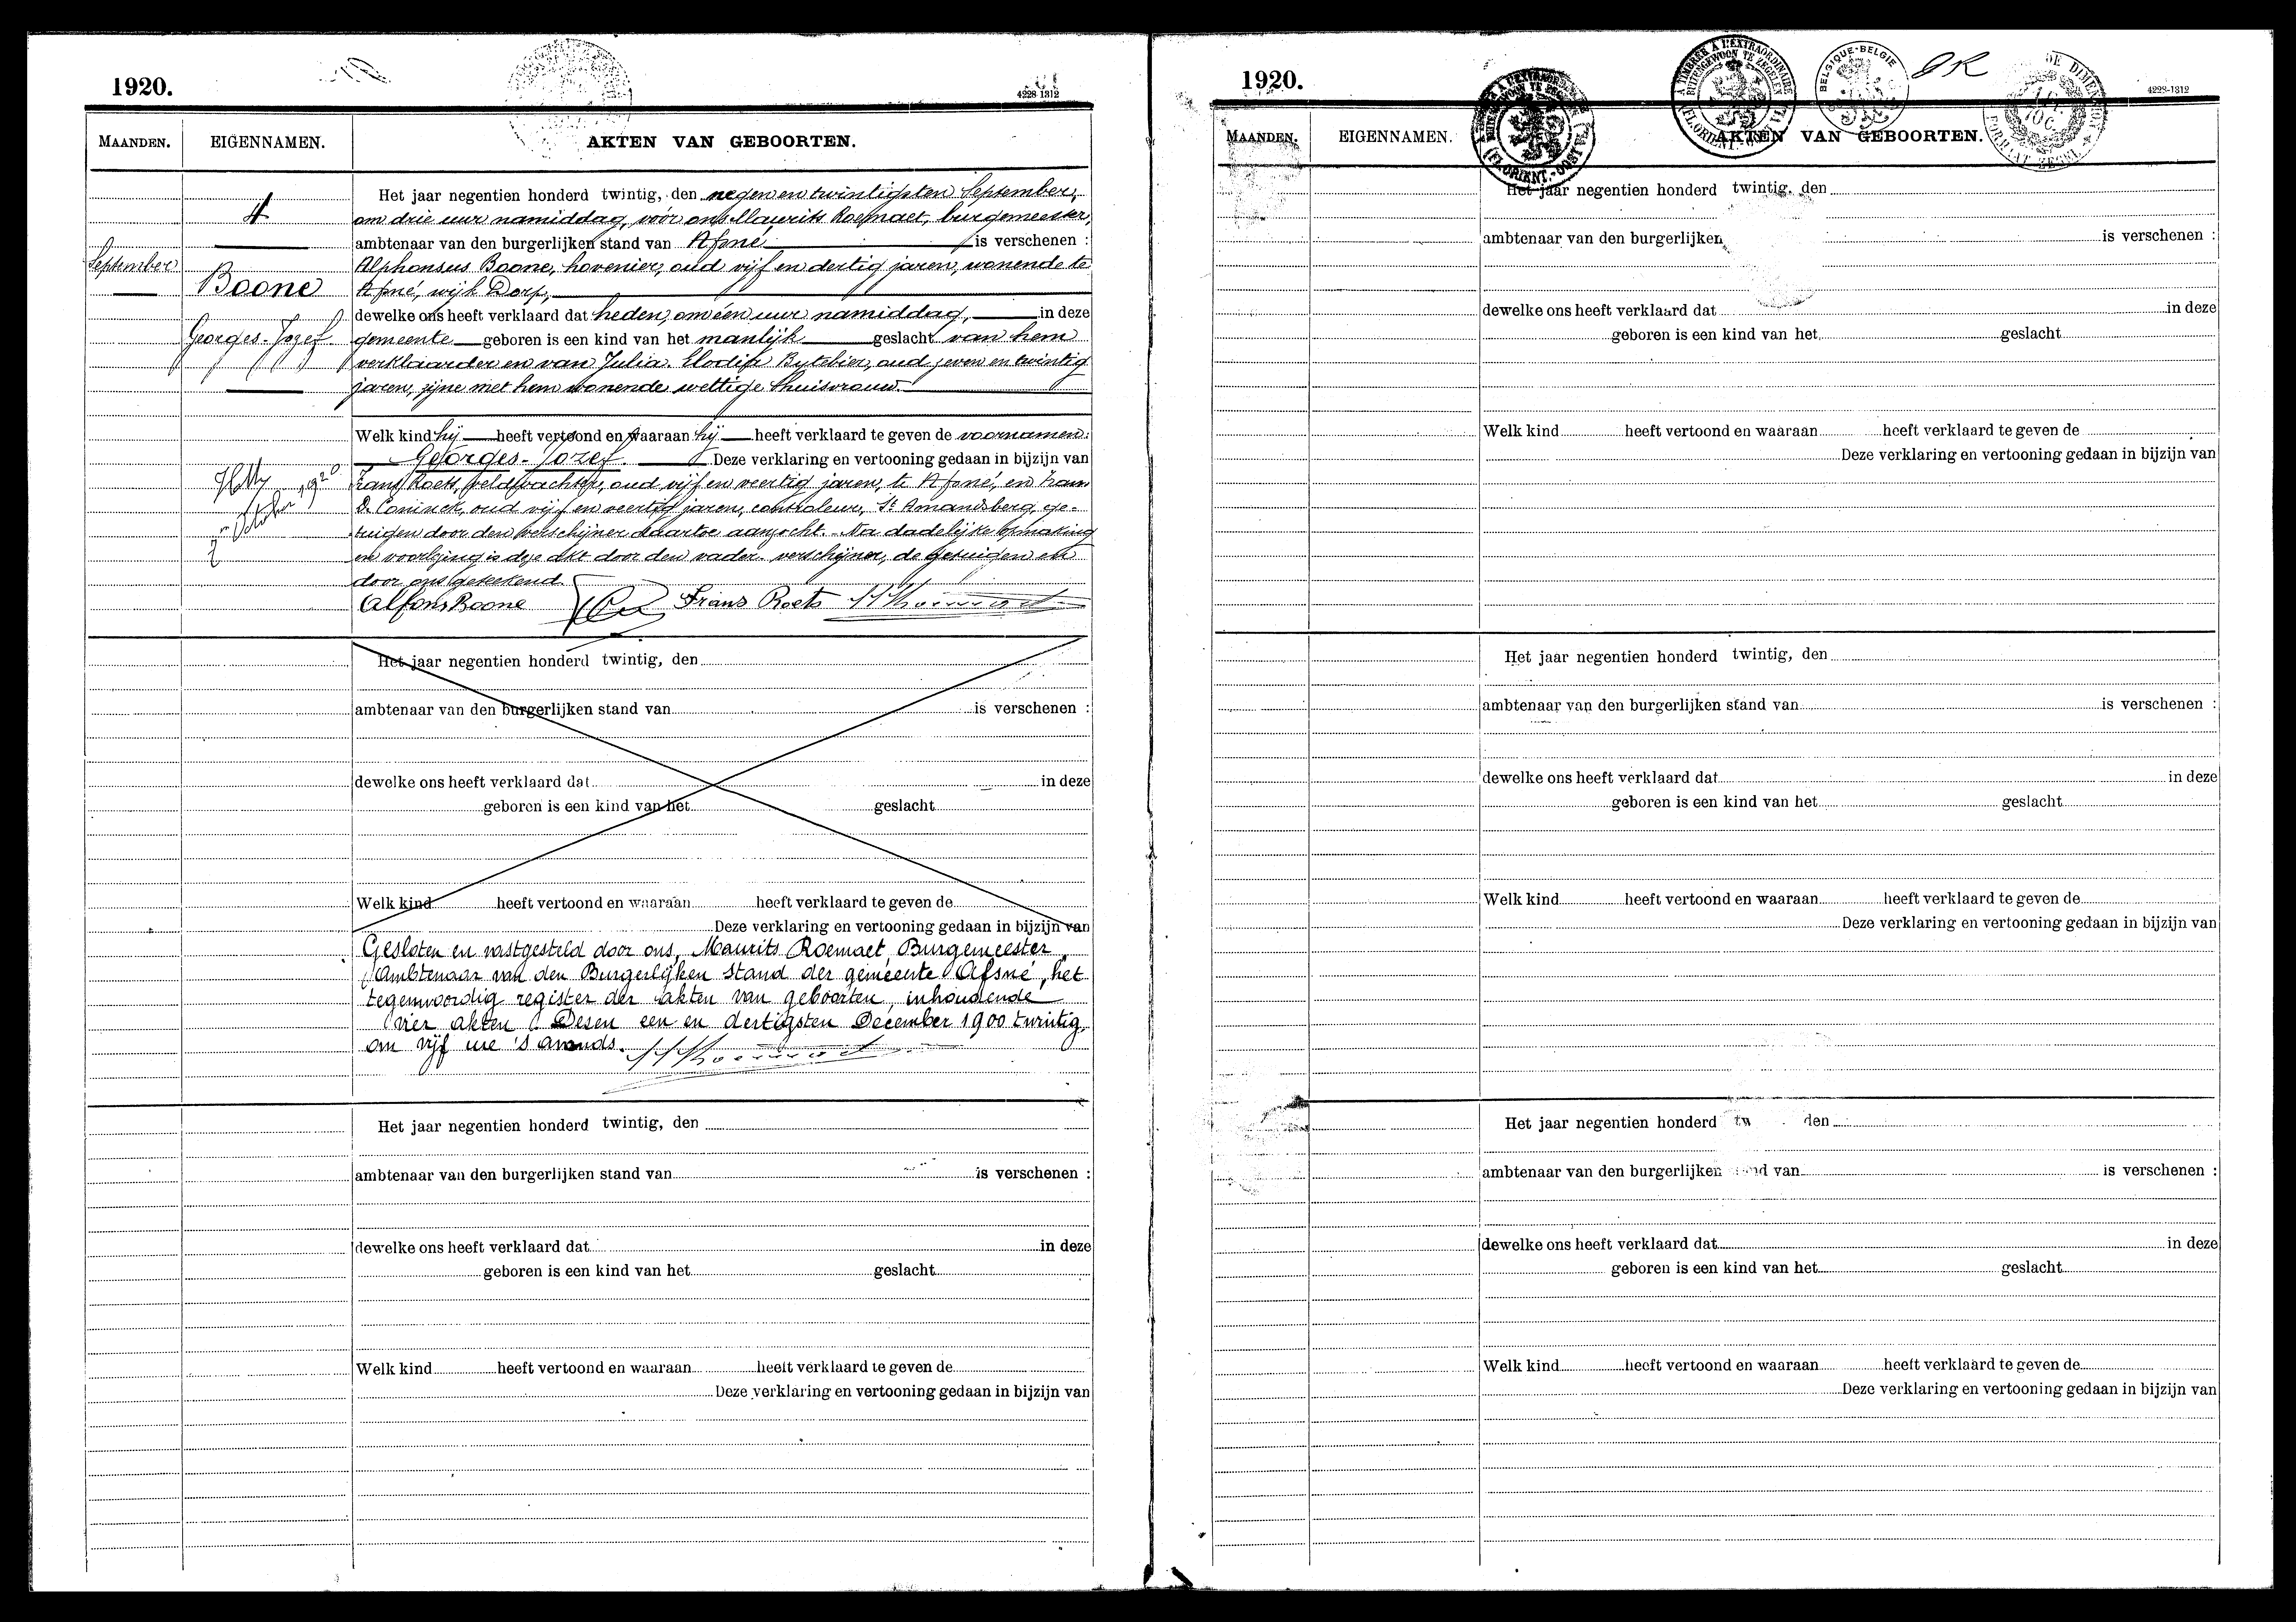 1920.
4228-1312
MAANDEN.
EIGENNAMEN.
AKTEN VAN GEBOORTEN.
4
September
Boone
Georges-Jozef
Het jaar negentien honderd twintig, den negen en twintigsten September,
om drie uur namiddag, vóór ons Maurits Roemaet, burgemeester,
ambtenaar van den burgerlijken stand van Afsné, is verschenen :
Alphonsus Boone, hovenier, oud vijf en dertig jaren, wonende te
Afsné, wijk Dorp,
dewelke ons heeft verklaard dat heden, om één uur namiddag, in deze
gemeente geboren is een kind van het manlijk geslacht van hem
verklaarder en van Julia Elodia Bytebier, oud zeven en twintig
jaren, zijne met hem wonende wettige huisvrouw.
Welk kind hij heeft vertoond en waaraan hij heeft verklaard te geven de voornamen:
Georges-Jozef. Deze verklaring en vertooning gedaan in bijzijn van
Frans Roets, veldwachter, oud vijf en veertig jaren, te Afsné, en Frans
De Coninck, oud vijf en veertig jaren, controleur, St Amandsberg, ge-
tuigen door den verschijner daartoe aanzocht. Na dadelijke opmaking
en voorlezing is deze akt door den vader-verschijner, de getuigen en
door ons geteekend.
October 1920
Alfons Boone Frans Roets
Het jaar negentien honderd twintig, den
ambtenaar van den burgerlijken stand van is verschenen :
dewelke ons heeft verklaard dat in deze
geboren is een kind van het geslacht
Welk kind heeft vertoond en waaraan heeft verklaard te geven de
Deze verklaring en vertooning gedaan in bijzijn van
Gesloten en vastgesteld door ons, Maurits Roemaet, Burgemeester,
Ambtenaar van den Burgerlijken Stand der gemeente Afsné, het
tegenwoordig register der akten van geboorten, inhoudende
vier akten. Desen een en dertigsten December 1900 twintig,
om vijf ure 's avonds.
Het jaar negentien honderd twintig, den
ambtenaar van den burgerlijken stand van is verschenen :
dewelke ons heeft verklaard dat in deze
geboren is een kind van het geslacht
Welk kind heeft vertoond en waaraan heeft verklaard te geven de
Deze verklaring en vertooning gedaan in bijzijn van
1920.
BELGIQUE-BELGIE
4228-1312
MAANDEN.
EIGENNAMEN.
AKTEN VAN GEBOORTEN.
Het jaar negentien honderd twintig, den
ambtenaar van den burgerlijken is verschenen :
dewelke ons heeft verklaard dat in deze
geboren is een kind van het geslacht
Welk kind heeft vertoond en waaraan heeft verklaard te geven de
Deze verklaring en vertooning gedaan in bijzijn van
Het jaar negentien honderd twintig, den
ambtenaar van den burgerlijken stand van is verschenen :
dewelke ons heeft verklaard dat in deze
geboren is een kind van het geslacht
Welk kind heeft vertoond en waaraan heeft verklaard te geven de
Deze verklaring en vertooning gedaan in bijzijn van
Het jaar negentien honderd tw den
ambtenaar van den burgerlijken nd van is verschenen :
dewelke ons heeft verklaard dat in deze
geboren is een kind van het geslacht
Welk kind heeft vertoond en waaraan heeft verklaard te geven de
Deze verklaring en vertooning gedaan in bijzijn van